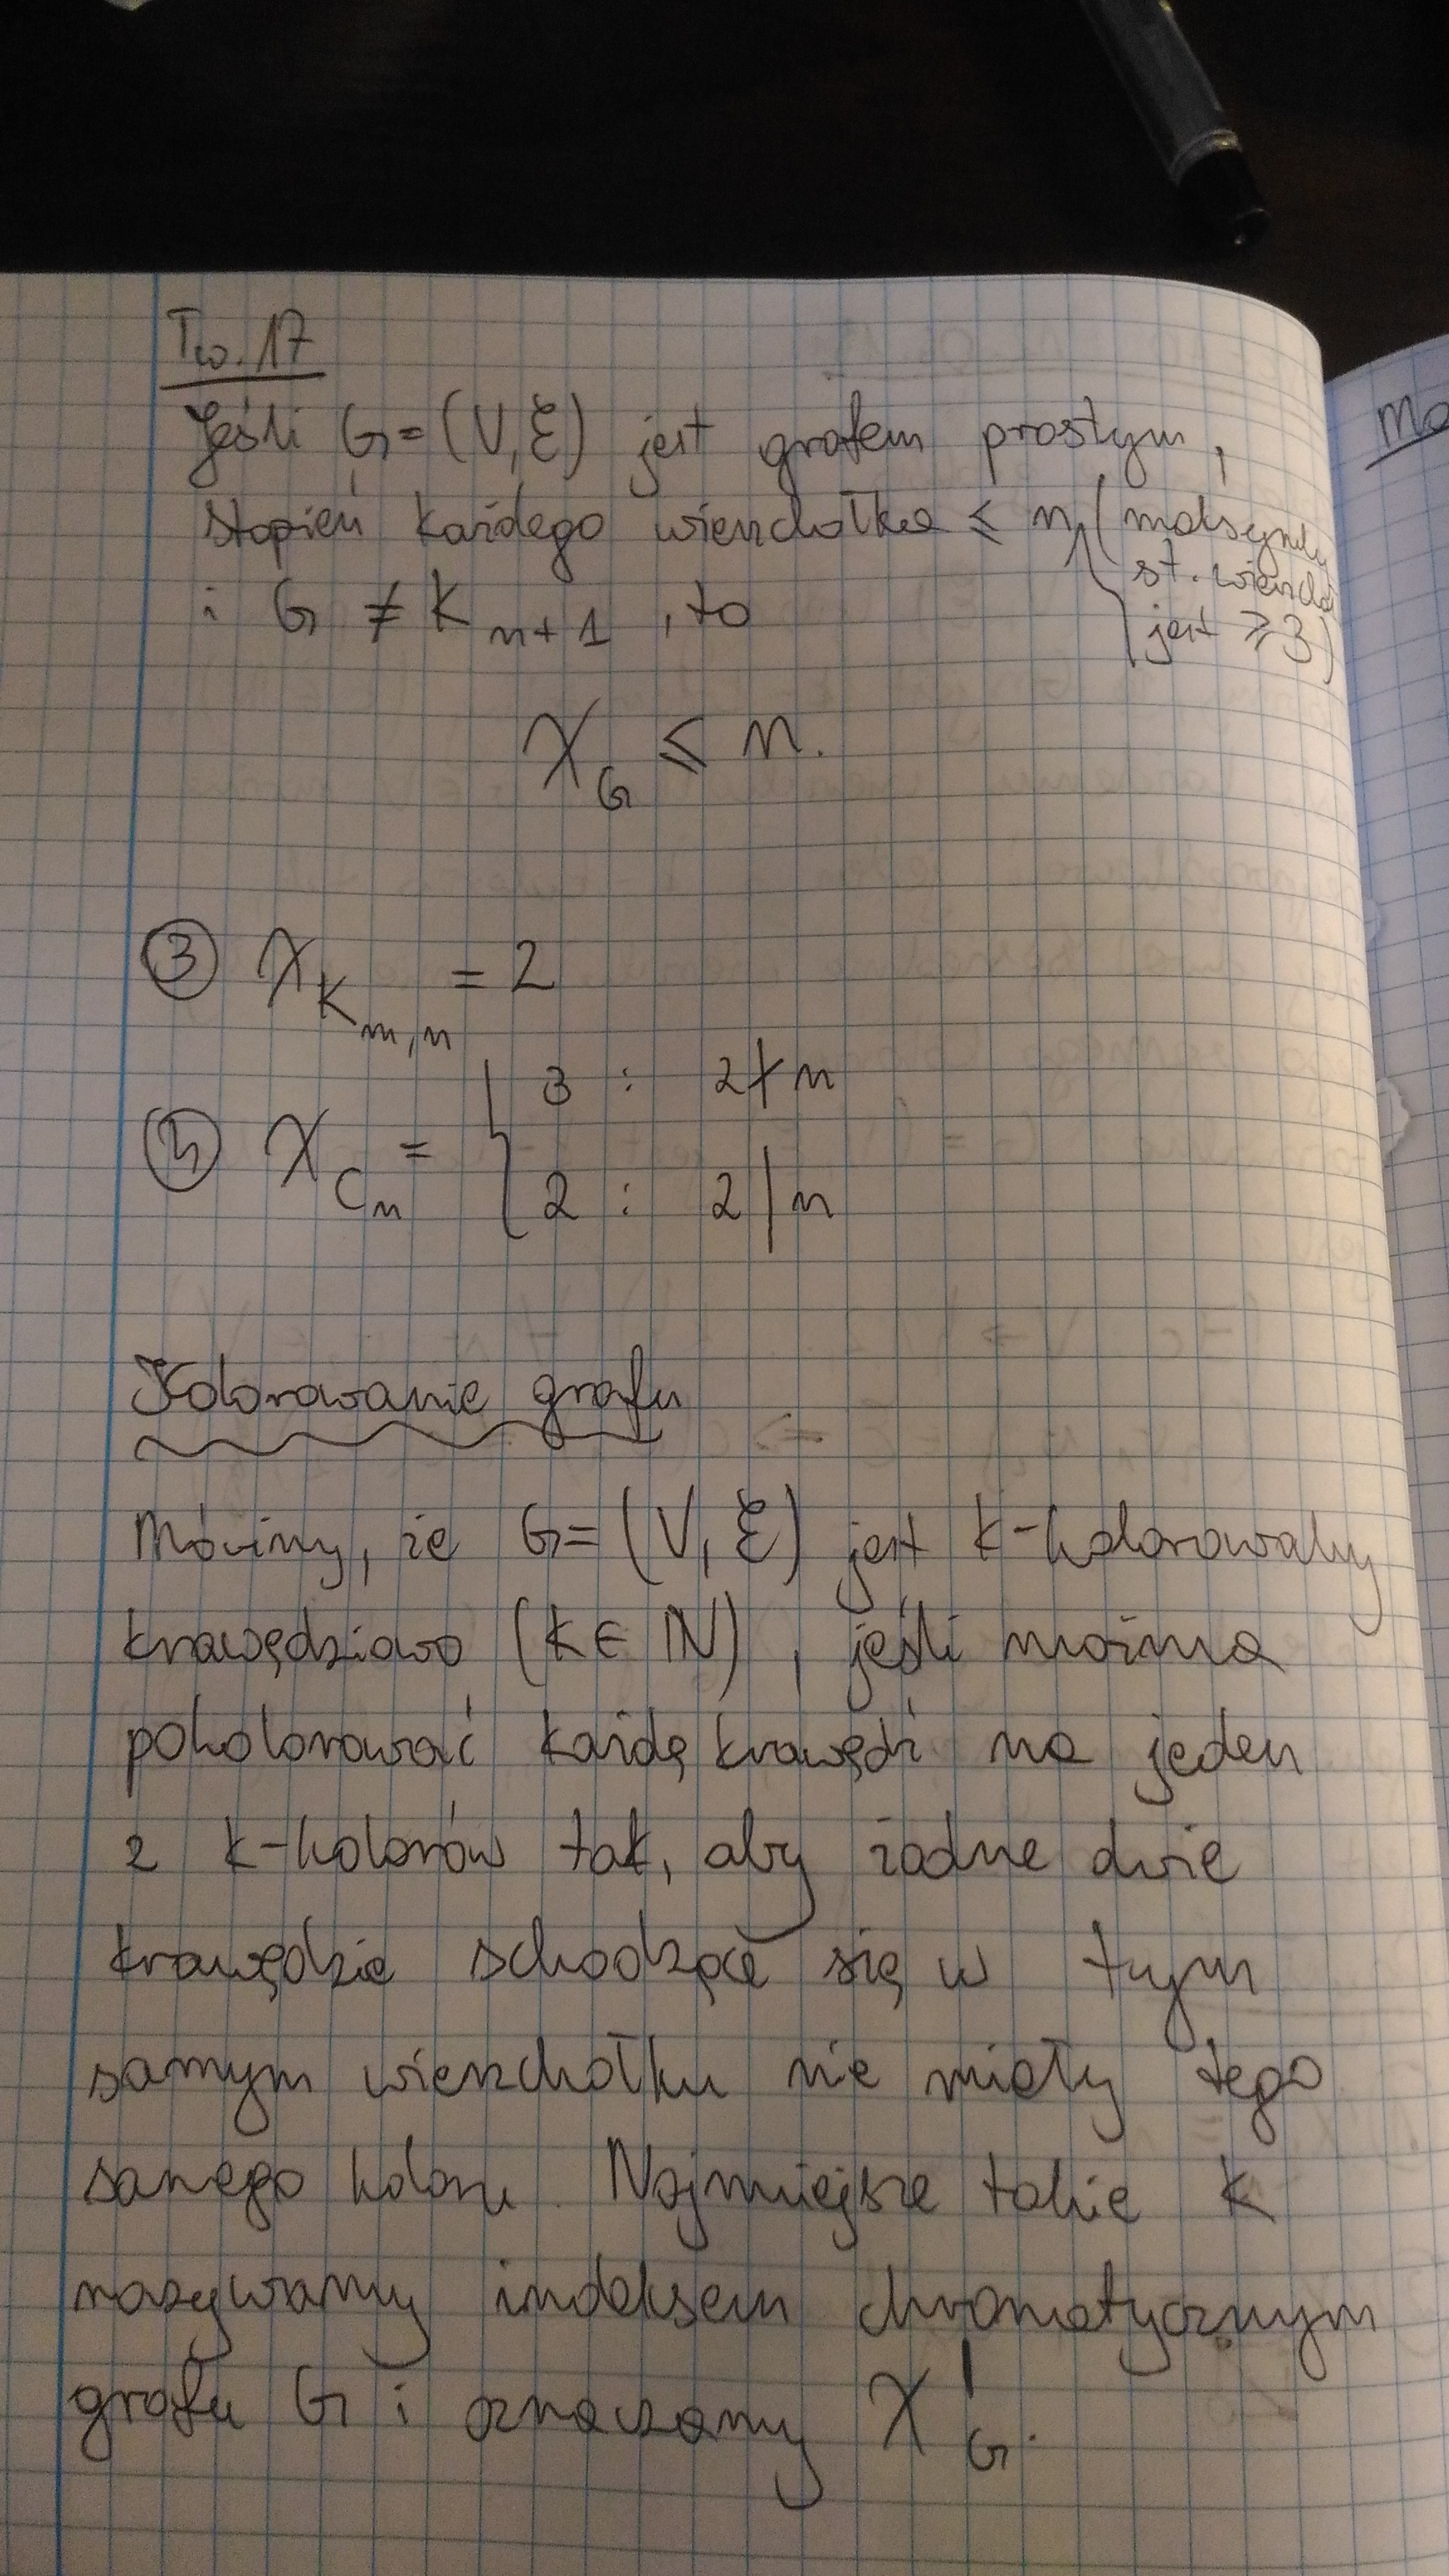 Tw. 17
Jeśli G=(V,ℰ) jest grafem prostym,
stopień każdego wierzchołka ≤ n (maksymalny
st. wierzchoł
jest ≥ 3)
i G ≠ K_{n+1}, to
χ_G ≤ n.
③ χ_{K_{m,n}} = 2
④ χ_{C_n} = { 3 : 2∤n
2 : 2|n
Kolorowanie grafu
Mówimy, że G=(V,ℰ) jest k-kolorowalny
krawędziowo (k∈ℕ), jeśli można
pokolorować każdą krawędź na jeden
z k-kolorów tak, aby żadne dwie
krawędzie schodzące się w tym
samym wierzchołku nie miały tego
samego koloru. Najmniejsze takie k
nazywamy indeksem chromatycznym
grafu G i oznaczamy χ'_G.